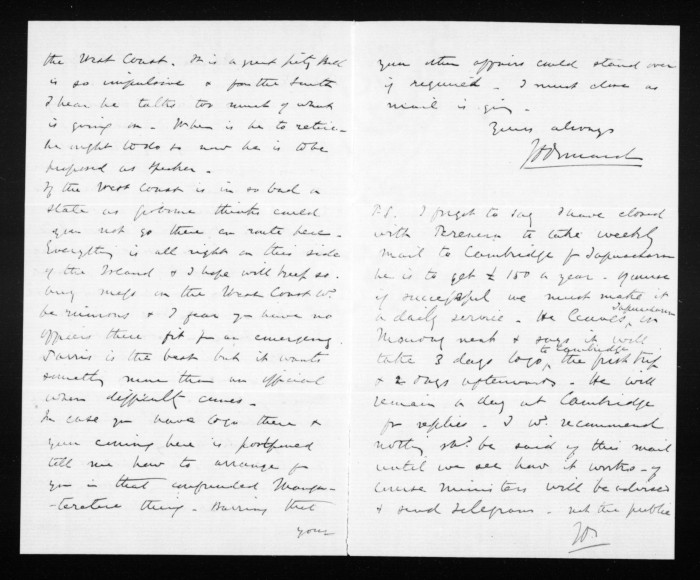 the West Coast. It is a great pity
is so impulsive & from the South
I hear he talks too much of what
is going on. When is he to retire -
he ought to do so now he is to be
proposed as Speaker.
If the West Coast is in so bad a
state as thinks could
you not go there en route here.
Everything is all right on this side
of the Island & I hope will keep so.
Any mess on the West Coast wd.
be ruinous & I fear you have no
officers there fit for an emergency.
Parris is the best but it wants
something more than an official
when difficulty comes.
In case you have to go there &
your coming here is postponed
tell me how to arrange for
you in that confounded Manga-
-teretere thing. Barring that
your
your other affairs could stand over
if required. I must close as
mail is going.
Yours always
JD Ormond
P.S. I forgot to say I have closed
with to take weekly
mail to Cambridge by Tapuaeharu
he is to get £150 a year. Of course
if successful we must make it
a daily service. He leaves Tapuaeharu on
Monday next & says it will
take 3 days to go to Cambridge the first trip
& 2 days afterwards. He will
remain a day at Cambridge
for replies. I wd. recommend
nothing shd. be said of this mail
until we see how it works - of
course Ministers will be advised
& send telegrams. not the public
JDO